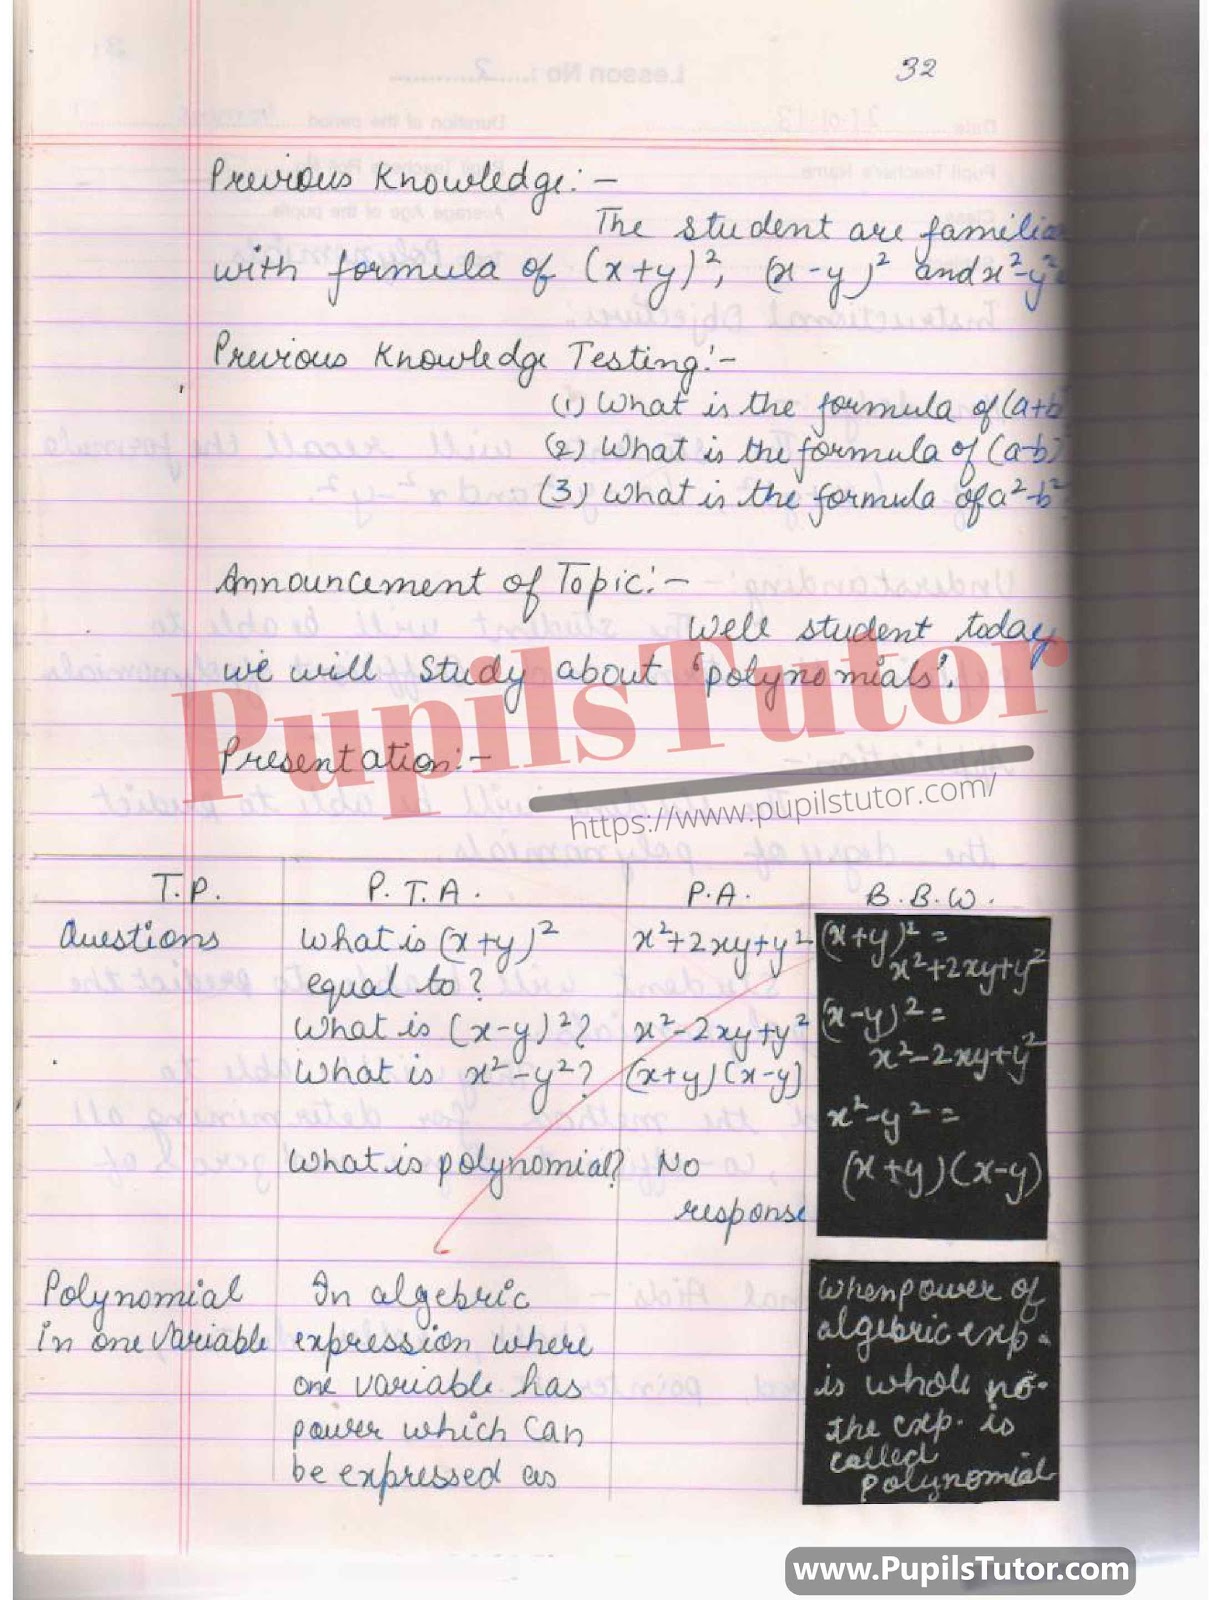 32
Previous Knowledge:-
The student are familiar
with formula of (x+y)², (x-y)² and x²-y²
Previous Knowledge Testing:-
(1) What is the formula of (a+b)
(2) What is the formula of (a-b)
(3) What is the formula of a²-b²
Announcement of Topic:-
Well student today
we will study about 'polynomials'.
PupilsTutor
Presentation:-
https://www.pupilstutor.com/
T.P. P.T.A. P.A. B.B.W.
Questions
What is (x+y)²
equal to?
What is (x-y)²?
What is x²-y²?
What is polynomial?
x²+2xy+y²
x²-2xy+y²
(x+y)(x-y)
No
response
(x+y)² =
x²+2xy+y²
(x-y)² =
x²-2xy+y²
x²-y² =
(x+y)(x-y)
Polynomial
in one variable
In algebric
expression where
one variable has
power which can
be expressed as
When power of
algebric exp.
is whole no.
the exp. is
called
polynomial
www.PupilsTutor.com